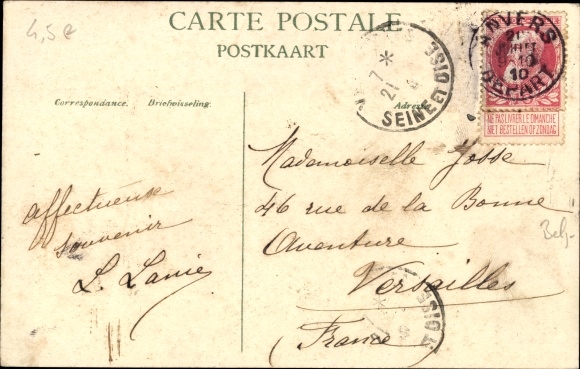 4,5 €
CARTE POSTALE
POSTKAART
Correspondance. Briefwisseling.
Adresse
ANVERS
10
DEPART
SEINE ET OISE
7
21
NE PAS LIVRER LE DIMANCHE
NIET BESTELLEN OP ZONDAG
Mademoiselle Josse
46 rue de la Bonne
Aventure
Versailles
France
affectueux
souvenir
Belg-
ET OISE